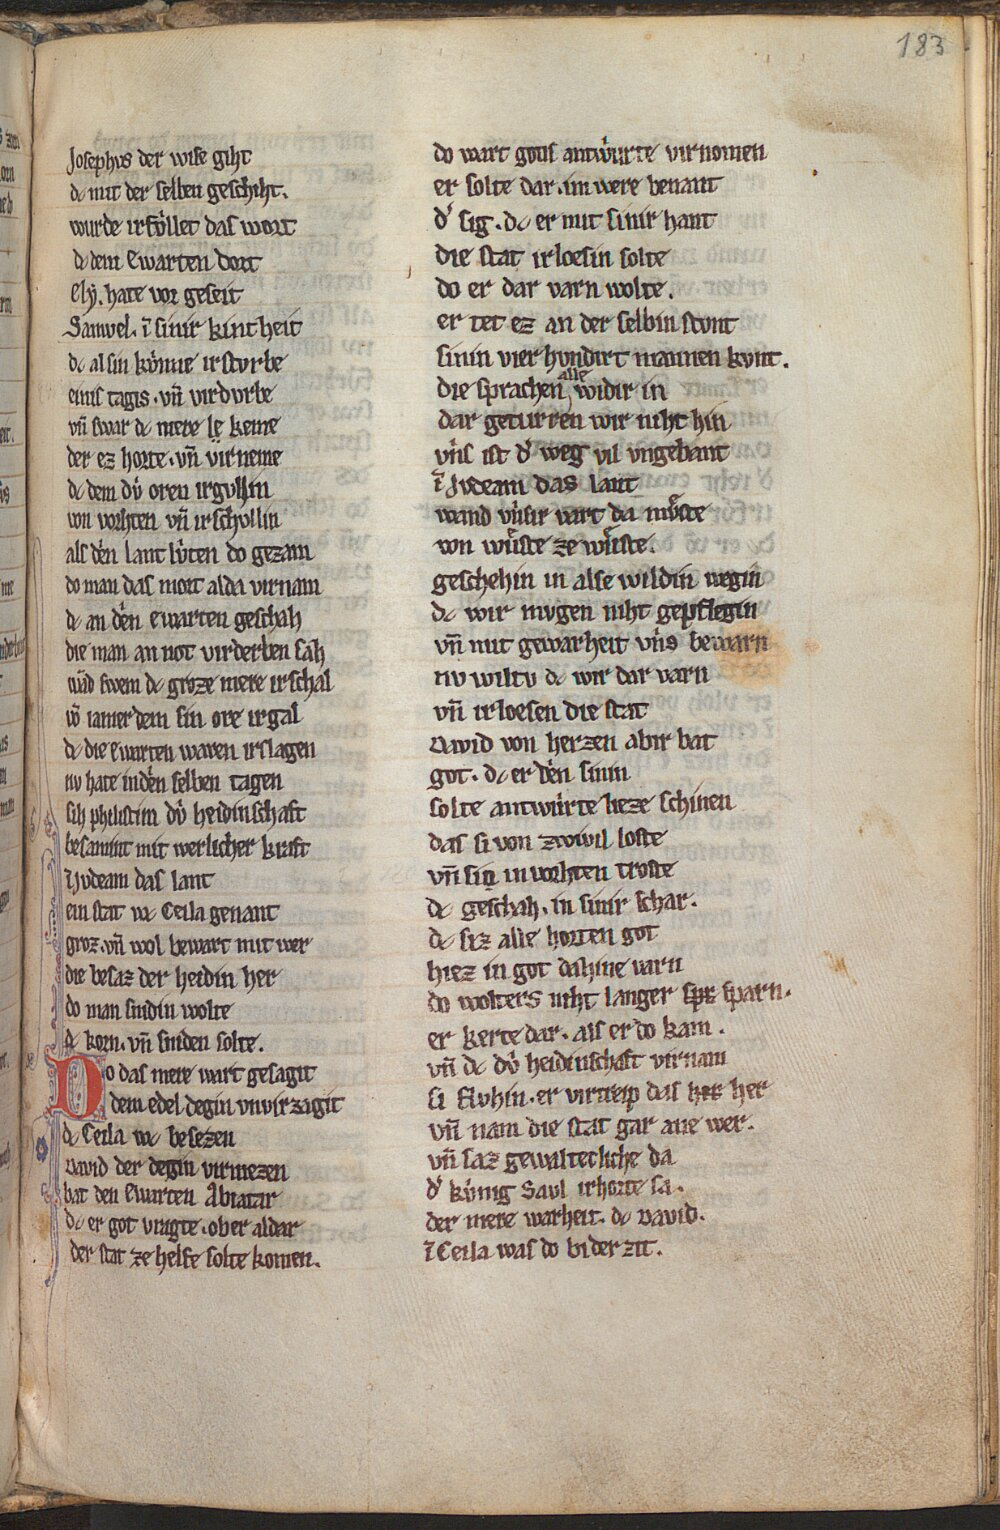 183
Josephvs der wise giht
dc mit der selben geschiht.
wurde irfo̍llet das wort
dc dem Ewarten dort
Ely. hate vor geseit
Samvel. ī sinir kintheit
dc al sin ko̍nne irstvrbe
einis tagis. vn̄ virdvrbe
vn̄ swar dc mere ie keme
der ez horte. vn̄ virneme
dc dem dv̍ oren irgvllin
von vorhten vn̄ irschvllin
als de̍n lant lv̍ten do gezam
do man das mort alda virnam
dc an de̍n ewarten geschah
die man an not virderben sah
wād swem dc groze mere irschal
vo̍ iamer dem sin ore irgal
dc die Ewarten waren irslagen
nv hate in de̍n selben tagen
sih philistim dv̍ heidinschaft
besamint mit werlicher kraft
ī Jvdeam das lant
ein stat wc Ceila genant
groz. vn̄ wol bewart mit wer
die besaz der heidin her
do man snidin wolte
dc korn. vn̄ sniden solte.
Do das mere wart gesagit
dem edel degin vnvirzagit
dc Ceila wc besezen
David der degin virmezen
bat den Ewarten Abiatar
dc er got vragte. ob er aldar
der stat ze helfe solte komen.
do wart gotis antwu̍rte virnomen
er solte dar. im were benant
d' sig. dc er mit sinir hant
die stat irloesin solte
do er dar varn wolte.
er tet ez an der selbin stvnt
sinin vier hvndirt mannen kvnt.
die sprachen alle widir in
dar geturren wir niht hin
vn̍s ist d' weg vil vngebant
ī Jvdeam das lant
wand vn̍sir vart da mv̊ste
von wu̍ste ze wu̍ste.
geschehin in alse wildin wegin
dc wir mvgen niht gepflegin
vn̄ mit gewarheit vn̍s bewarn
nv wiltv dc wir dar varn
vn̄ irloesen die stat
David von herzen abir bat
got. dc er de̍n sinin
solte antwu̍rte lieze schinen
das si von zwivil loste
vn̄ sin in vorhten troste
dc geschah. in sinir schar.
dc siz alle horten got
hiez in got dahine varn
do wolters niht langer spr sparn.
er kerte dar. als er do kam.
vn̄ dc dv̍ heidenschaft virnam
si flvhin. er virtreip das her her
vn̄ nam die stat gar ane wer.
vn̄ saz gewaltecliche da
d' kv̍nig Savl irhorte sa.
der mere warheit. dc David.
ī Ceila was do bi der zit.